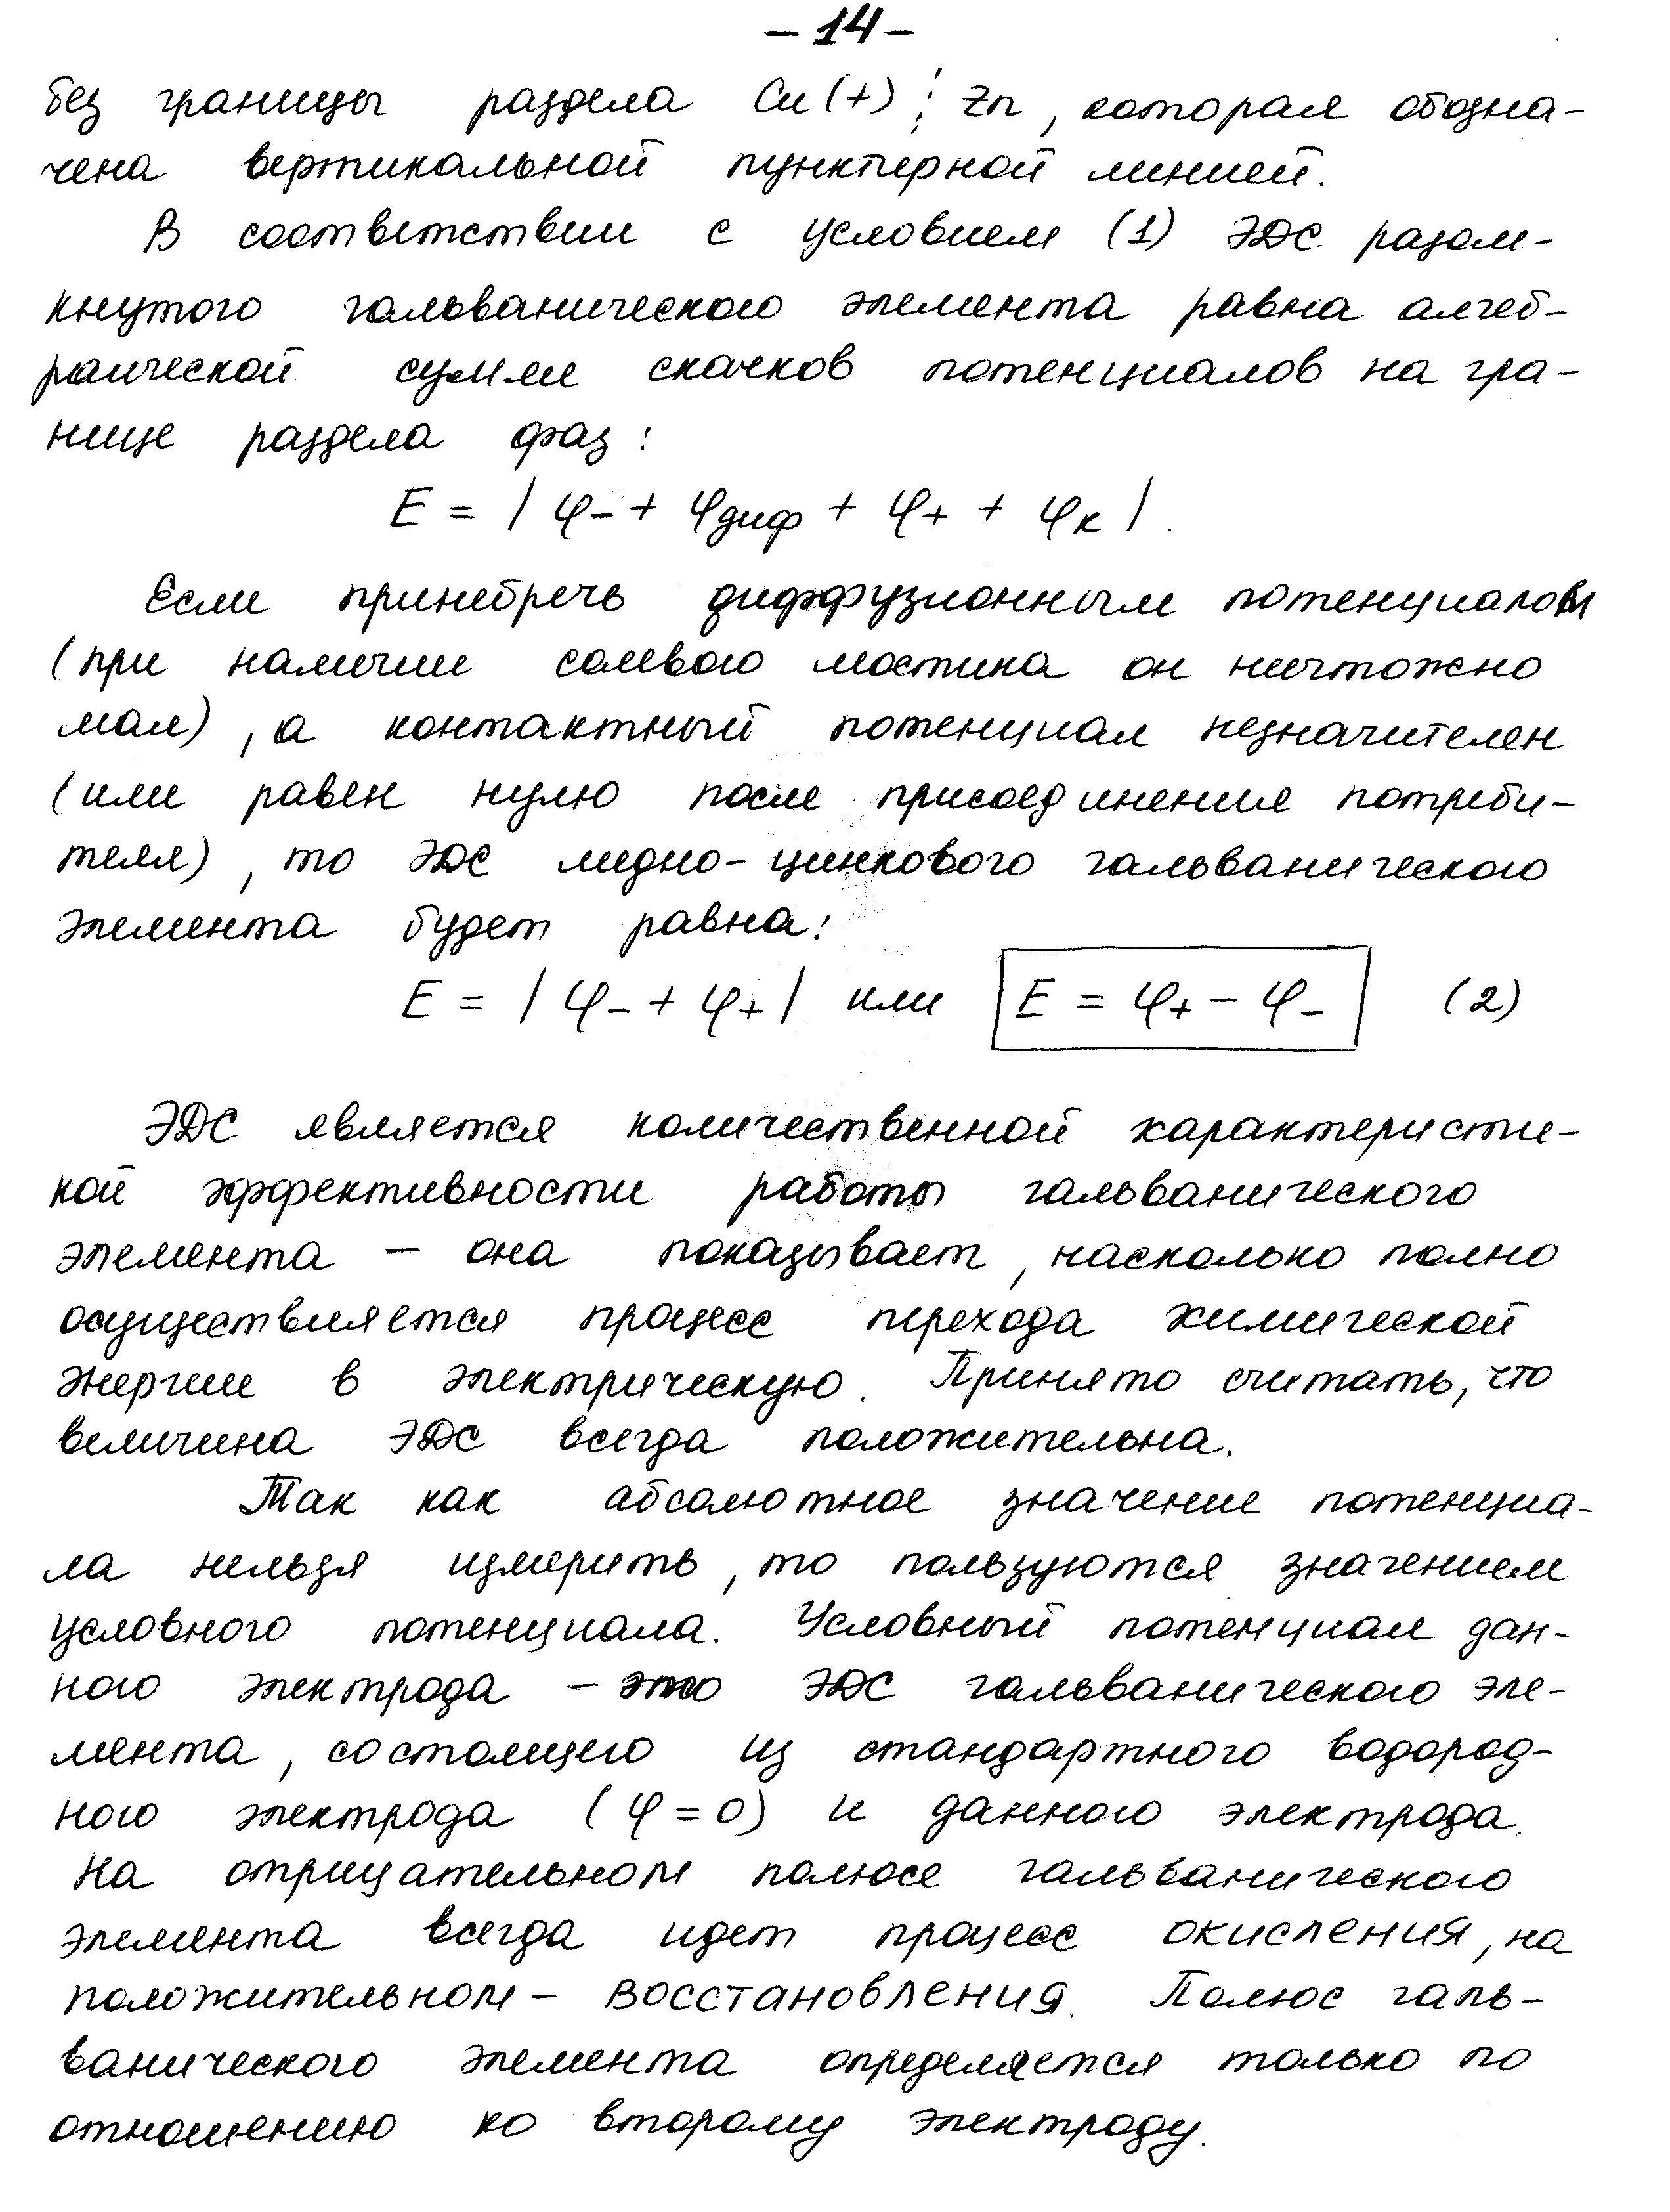 – 14 –
без границы раздела Cu (+) ¦ Zn, которая обозна-
чена вертикальной пунктирной линией.
В соответствии с условием (1) ЭДС разом-
кнутого гальванического элемента равна алгеб-
раической сумме скачков потенциалов на гра-
нице раздела фаз:
E = | φ₋ + φдиф + φ₊ + φк | .
Если принебречь диффузионным потенциалом
(при наличии солевого мостика он ничтожно
мал), а контактный потенциал незначителен
(или равен нулю после присоединения потреби-
теля), то ЭДС медно-цинкового гальванического
элемента будет равна:
E = | φ₋ + φ₊ | или E = φ₊ – φ₋ (2)
ЭДС является количественной характеристи-
кой эффективности работы гальванического
элемента – она показывает, насколько полно
осуществляется процесс перехода химической
энергии в электрическую. Принято считать, что
величина ЭДС всегда положительна.
Так как абсолютное значение потенциа-
ла нельзя измерить, то пользуются значением
условного потенциала. Условный потенциал дан-
ного электрода – это ЭДС гальванического эле-
мента, состоящего из стандартного водород-
ного электрода (φ = 0) и данного электрода.
На отрицательном полюсе гальванического
элемента всегда идет процесс окисления, на
положительном – восстановления. Полюс галь-
ванического элемента определяется только по
отношению ко второму электроду.